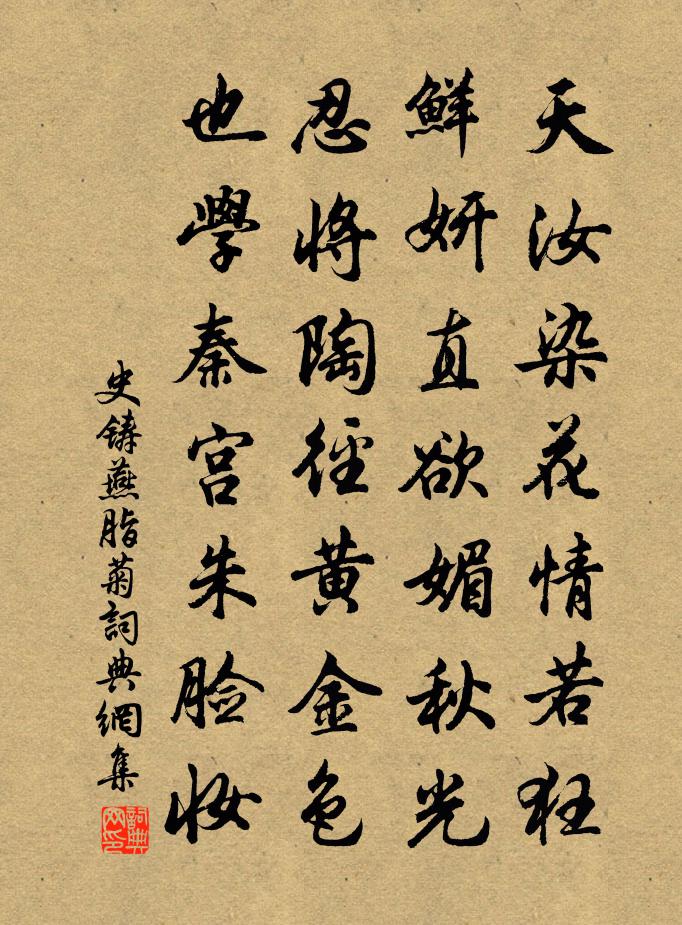 天汝染花情若狂
鮮妍直欲媚秋光
忍將陶徑黄金色
也學秦宫朱脸妆
史鑄燕脂菊詞典網集
詞典网印